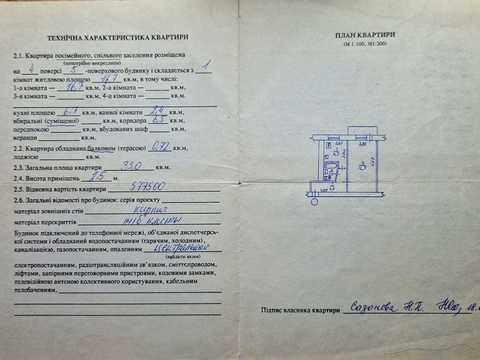 ТЕХНІЧНА ХАРАКТЕРИСТИКА КВАРТИРИ
2.1. Квартира посімейного, спільного заселення розміщена
(непотрібне викреслити)
на 4 поверсі 5 -поверхового будинку і складається з 1
кімнат житловою площею 16,7 кв.м, в тому числі:
1-а кімната — 16,7 кв.м, 2-а кімната — кв.м,
3-я кімната — кв.м, 4-а кімната — кв.м.
кухні площею кв.м, ванної кімнати кв.м,
вбиральні (суміщеної) кв.м, коридора кв.м,
передпокою кв.м, вбудованих шаф кв.м,
веранди кв.м.
2.2. Квартира обладнана балконом (терасою) 0,72 кв.м,
лоджією кв.м.
2.3. Загальна площа квартири 33,0 кв.м.
2.4. Висота приміщень 2,5 м.
2.5. Відновна вартість квартири
2.6. Загальні відомості про будинок: серія проекту
матеріал зовнішніх стін кирпич
матеріал перекриттів
Будинок підключений до телефонної мережі, об'єднаної диспетчерсь-
кої системи і обладнаний водопостачанням (гарячим, холодним),
каналізацією, газопостачанням, опаленням
(вказати яким)
електропостачанням, радіотрансляційним зв'язком, сміттєпроводом,
ліфтами, запірними переговорними пристроями, кодовими замками,
телевізійною антеною колективного користування, кабельним
телебаченням,
ПЛАН КВАРТИРИ
(М 1:100, М1:200)
Підпис власника квартири Сазонова Н.П.